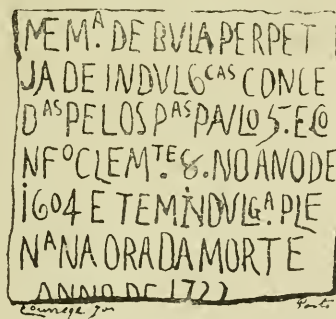 MEM.ᴬ DE BVLA PERPET
VA DE INDVLGᶜᵃˢ CONCE
Dᴬˢ PELOS Pᴬˢ PAVLO 5. E CO
NFº CLEMᵀᴱ 8. NO ANO DE
1604 E TEM INDVLGᴬ PLE
NᴬNA ORA DA MORTE
ANNO DE 1722